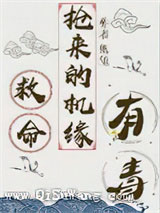 抢来的机缘
有
毒
救
命
www.QiSuWang.com